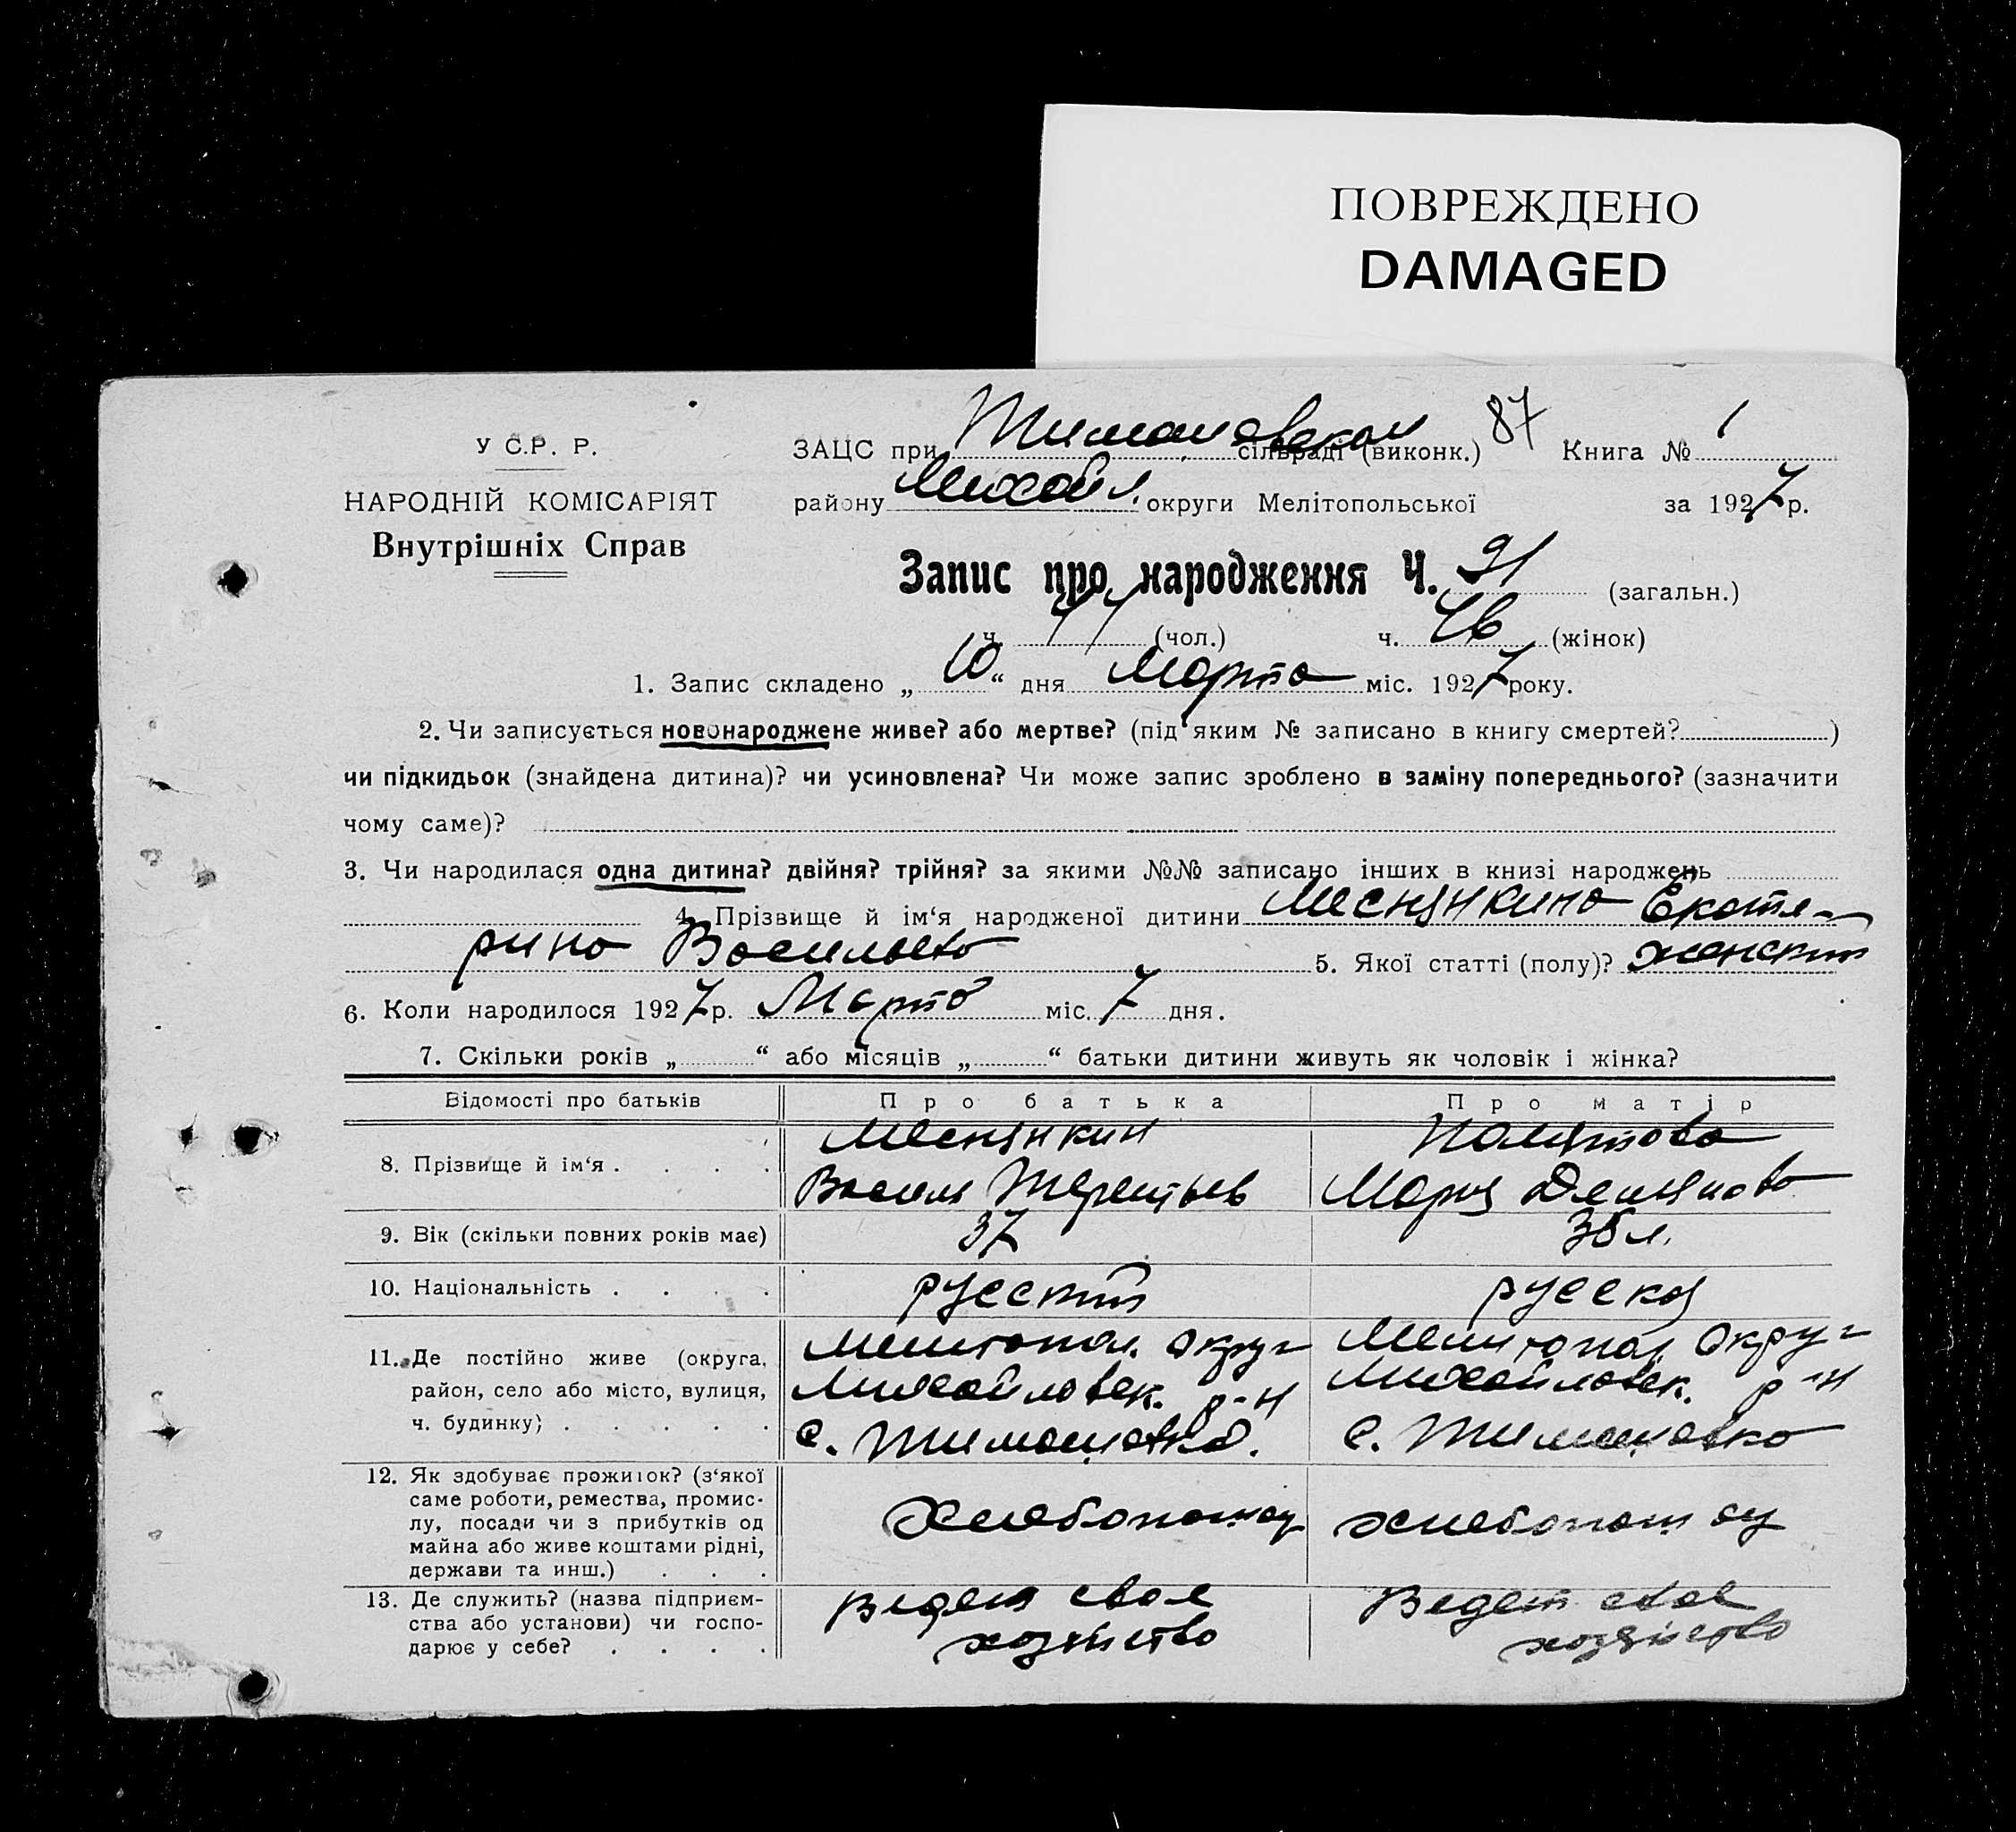 ПОВРЕЖДЕНО
DAMAGED
У С.Р. Р.
НАРОДНІЙ КОМІСАРІЯТ
Внутрішніх Справ
ЗАЦС при Тимошовском сільраді (виконк.) 87 Книга № 1
району Михайл. округи Мелітопольської за 1927 р.
Запис про народження Ч. 91 (загальн.)
ч. (чол.) ч. 46 (жінок)
1. Запис складено „ 10 “ дня Марта міс. 1927 року.
2. Чи записується новонароджене живе? або мертве? (під яким № записано в книгу смертей? )
чи підкидьок (знайдена дитина)? чи усиновлена? Чи може запис зроблено в заміну попереднього? (зазначити
чому саме)?
3. Чи народилася одна дитина? двійня? трійня? за якими №№ записано інших в книзі народжень
4. Прізвище й ім‘я народженої дитини Меснянкина Екате-
рина Васильевна 5. Якої статті (полу)? женский
6. Коли народилося 1927 р. Марта міс. 7 дня.
7. Скільки років „ “ або місяців „ “ батьки дитини живуть як чоловік і жінка?
Відомості про батьків Про батька Про матір
8. Прізвище й ім‘я . . . . Меснянкин
Васили Терентьев Мария Демяново
9. Вік (скільки повних років має) 37 35 л.
10. Національність . . . . русский руская
11. Де постійно живе (округа, район, село або місто, вулиця, ч. будинку) . . . . .
Мелитопол. округ
Михайловск. р-н
с. Тимошовка.
Мелитопол. округ
Михайловск. р-н
с. Тимошовка
12. Як здобуває прожиток? (з‘якої саме роботи, ремества, промислу, посади чи з прибутків од майна або живе коштами рідні, держави та инш.) . . .
Хлебопашец хлебопаш
13. Де служить? (назва підприємства або установи) чи господарює у себе? . . . .
Ведет свое
хозяйство
Ведет свое
хозяйство